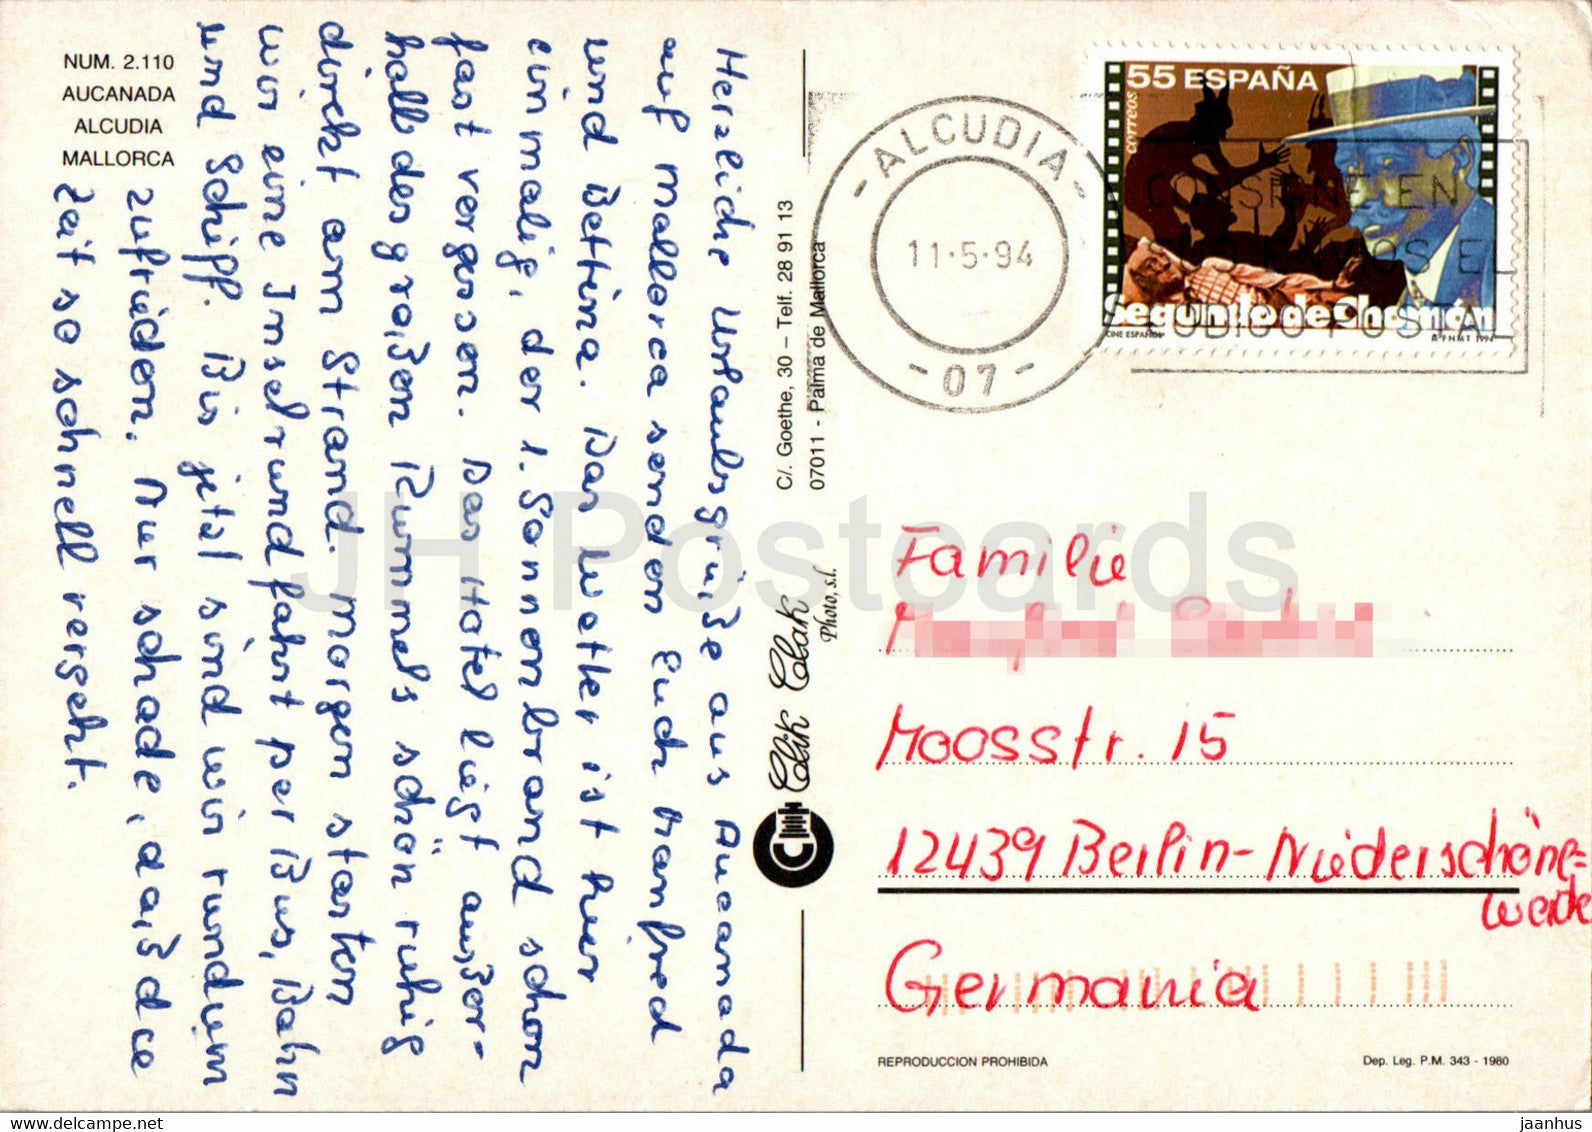 NUM. 2.110
AUCANADA
ALCUDIA
MALLORCA
Herzliche Urlaubsgrüße aus Aucanada
auf Mallorca senden Euch Manfred
und Bettina. Das Wetter ist hier
einmalig, der 1. Sonnenbrand schon
fast vergessen. Das Hotel liegt außer-
halb des großen Rummels schön ruhig
direkt am Strand. Morgen starten
wir eine Inselrundfahrt per Bus, Bahn
und Schiff. Bis jetzt sind wir rundum
zufrieden. Nur schade, daß die
Zeit so schnell vergeht.
C/. Goethe, 30 – Telf. 28 91 13
07011 - Palma de Mallorca
Clik Clak
Photo, s.l.
- ALCUDIA -
11·5·94
- 07 -
CONSIGNE EN
SUS ENVIOS EL
CODIGO POSTAL
55 ESPAÑA
correos
Segundo de Chomón
CINE ESPAÑOL
F N M T 1994
Familie
Moosstr. 15
12439 Berlin-Niederschöne=
weide
Germania
REPRODUCCION PROHIBIDA
Dep. Leg. P.M. 343 - 1980
JH Postcards
www.delcampe.net
jaanhus